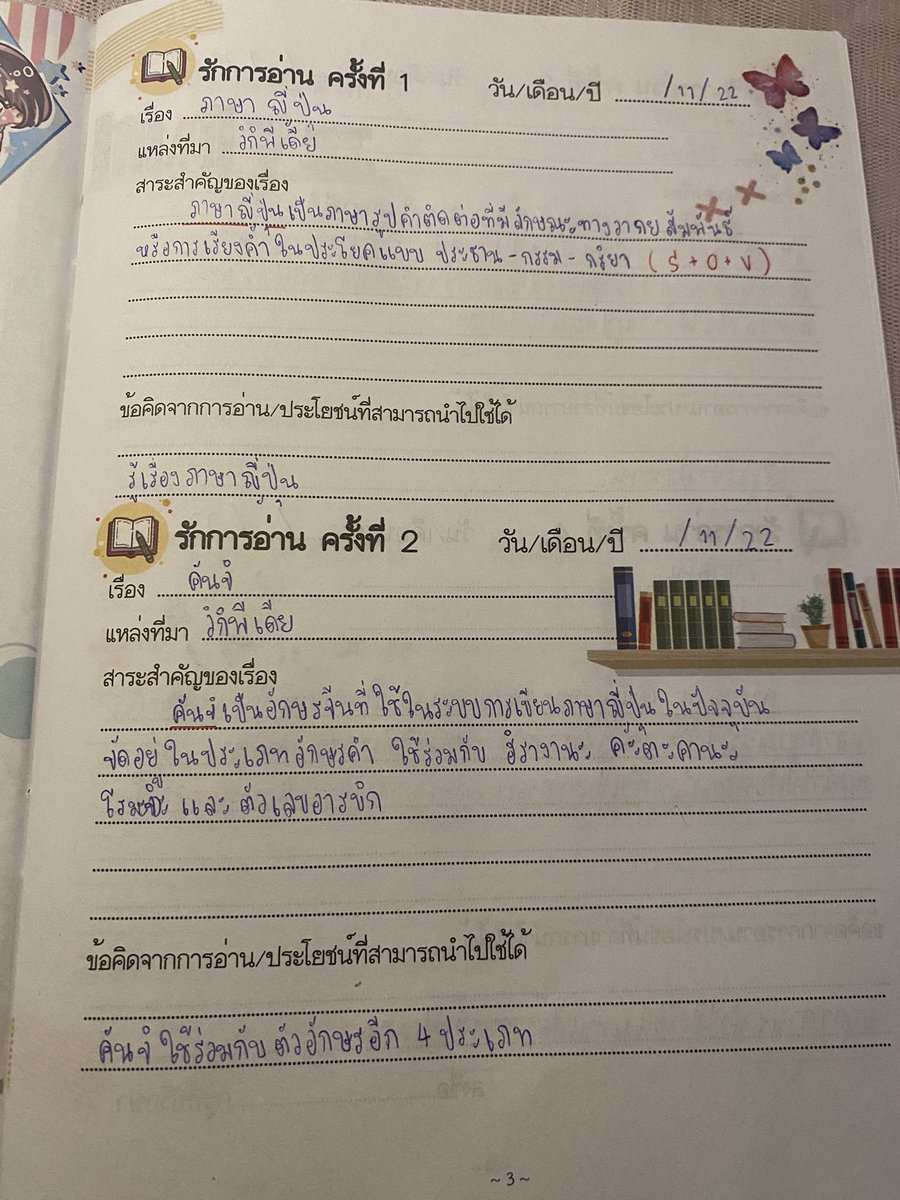 รักการอ่าน ครั้งที่ 1 วัน/เดือน/ปี /11/22
เรื่อง ภาษาญี่ปุ่น
แหล่งที่มา วิกิพีเดีย
สาระสำคัญของเรื่อง
ภาษาญี่ปุ่นเป็นภาษารูปคำติดต่อที่มีลักษณะทางวากยสัมพันธ์
หรือการเรียงคำในประโยคแบบ ประธาน-กรรม-กริยา (S+O+V)
ข้อคิดจากการอ่าน/ประโยชน์ที่สามารถนำไปใช้ได้
รู้เรื่องภาษาญี่ปุ่น
รักการอ่าน ครั้งที่ 2 วัน/เดือน/ปี /11/22
เรื่อง คันจิ
แหล่งที่มา วิกิพีเดีย
สาระสำคัญของเรื่อง
คันจิเป็นอักษรจีนที่ใช้ในระบบการเขียนภาษาญี่ปุ่นในปัจจุบัน
จัดอยู่ในประเภทอักษรคำ ใช้ร่วมกับ ฮิรางานะ คะตะคานะ
และตัวเลขอารบิก
ข้อคิดจากการอ่าน/ประโยชน์ที่สามารถนำไปใช้ได้
คันจิใช้ร่วมกับตัวอักษรอีก 4 ประเภท
~3~